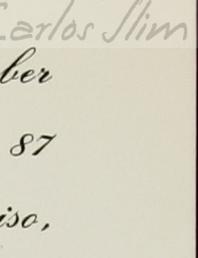 Carlos Slim
ber
87
iso,